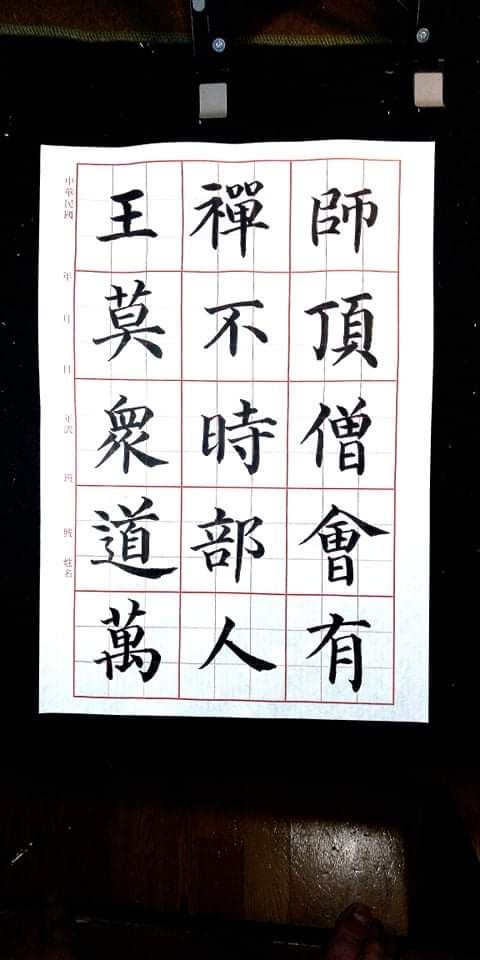 師頂僧會有
禪不時部人
王莫眾道萬
中華民國 年 月 日 年 班 號 姓名